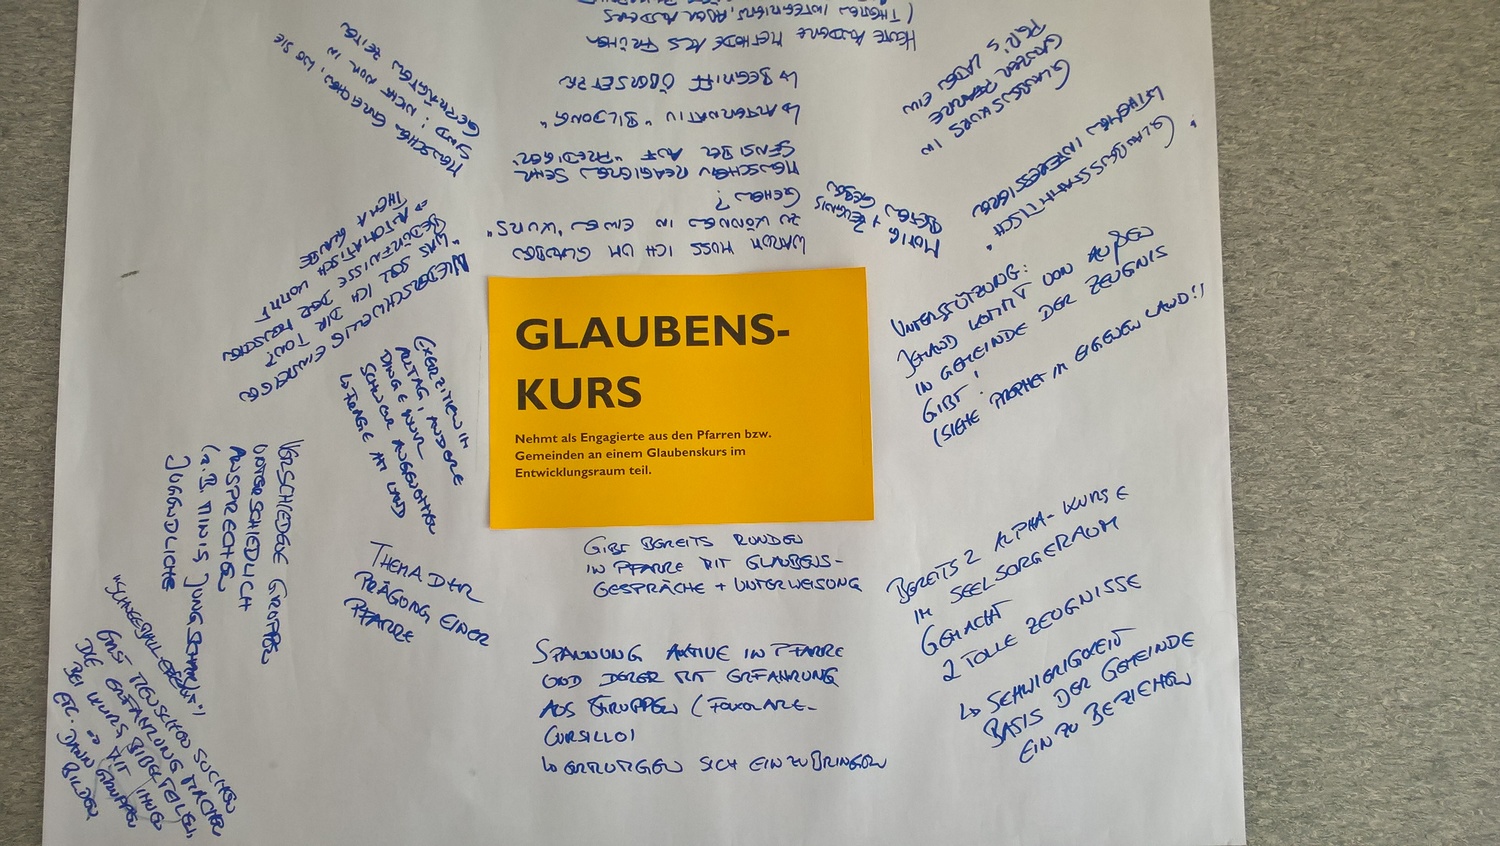 GLAUBENS-
KURS
Nehmt als Engagierte aus den Pfarren bzw.
Gemeinden an einem Glaubenskurs im
Entwicklungsraum teil.
HEUTE ANDERE METHODE ALS FRÜHER
(THEMEN INTEGRIEREN, ABER ANDERS
↳ BEGRIFF ÜBERSETZEN
↳ ALTERNATIV "BILDUNG"
MENSCHEN REAGIEREN SEHR
SENSIBEL AUF "PREDIGEN"
WARUM MUSS ICH UM GLAUBEN
ZU KÖNNEN IN EINEN "KURS"
GEHEN?
GLAUBENSKURS IN
GANZER PFARRE
PGR'S LADEN EIN
GLAUBENSSTAMMTISCH
WIRTSHAUS
INTERESSIERE
MUTIG + ZEUGNIS
GEBEN
UNTERSTÜTZUNG:
JEMAND KOMMT VON AUßEN
IN GEMEINDE DER ZEUGNIS
GIBT!
(SIEHE PROPHET IM EIGENEN LAND!!
BEREITS 2 ALPHA-KURSE
IM SEELSORGERAUM
GEMACHT
2 TOLLE ZEUGNISSE
↳ SCHWIERIGKEIT
BASIS DER GEMEINDE
EINZUBEZIEHEN
GIBT BEREITS RUNDEN
IN PFARRE MIT GLAUBENS-
GESPRÄCHE + UNTERWEISUNG
SPANNUNG AKTIVE IN PFARRE
UND DERER MIT ERFAHRUNG
AUS GRUPPEN (FOKOLARE-
CURSILLO)
↳ ERMUTIGEN SICH EINZUBRINGEN
THEMA DER
PRÄGUNG EINER
PFARRE
"SCHNEEBALLEFFEKT")
GAST MENSCHEN SUCHEN
DIE ERFAHRUNG MACHEN
BEI KURS, BIBELTEILEN,
ETC. ⇒ MIT IHNEN
DANN GRUPPEN
BILDEN
VERSCHIEDENE GRUPPEN
UNTERSCHIEDLICH
ANSPRECHEN
(z.B. MINIS, JUNGSCHAR,
JUGENDLICHE
EXERZITIEN IM
ALLTAG, ANDERE
DINGE NUR
SCHWER ANGENOMMEN
↳ FRAGE AM LAND
NIEDERSCHWELLIG EINSTEIGEN
"WAS SOLL ICH DIR TUN?"
BEDÜRFNISSE DER MENSCHEN
⇒ AUTOMATISCH KOMMT
THEMA GLAUBE
MENSCHEN ERREICHEN, WO SIE
SIND; NICHT NUR IN
GEPRÄGTEN ZEITEN